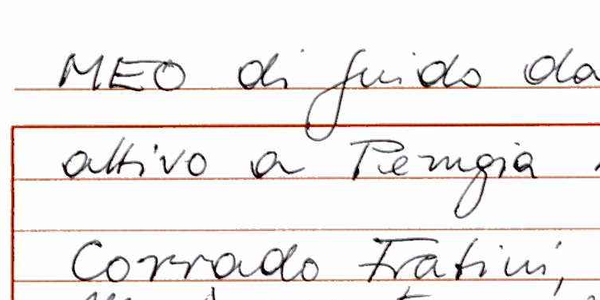 MEO di Guido da
attivo a Perugia
Corrado Fratini,